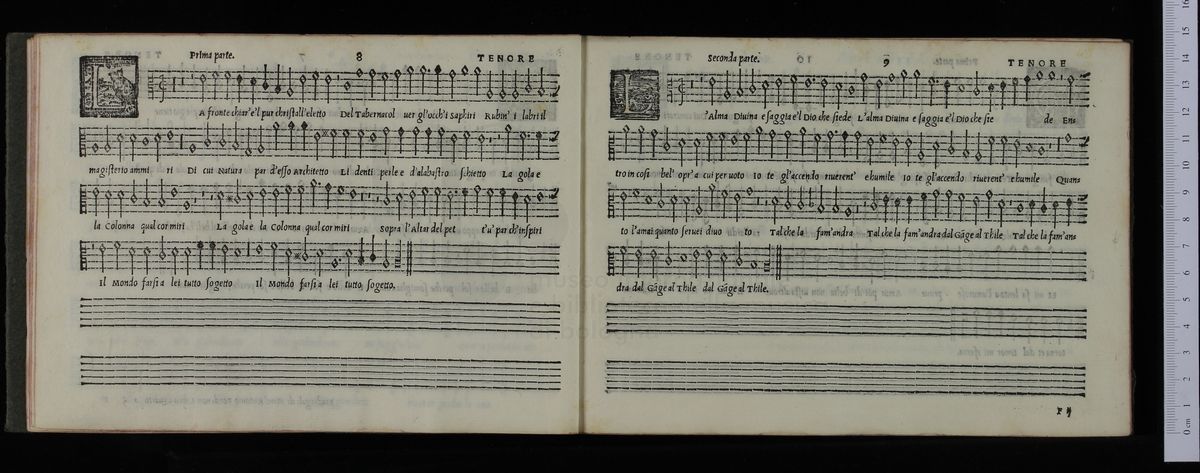 Prima parte. 8 TENORE
L A fronte chiar'e'l pur christall'eletto Del Tabernacol uer gl'occh'i Saphiri Rubin' i labri il
magisterio ammi ri Di cui Natura par d'esso Architetto Li denti perle e d'alabastro schietto La gola e
la Colonna qual cor miri La gola e la Colonna qual cor miri sopra l'Altar del pet t'u' par ch'inspiri
Il Mondo farsi a lei tutto sogetto Il Mondo farsi a lei tutto, sogetto.
Seconda parte. 9 TENORE
L 'Alma Diuina e saggia e'l Dio che siede L'alma Diuina e saggia e'l Dio che sie de Ens
tro in cosi bel' opr'a cui per uoto Io te gl'accendo riuerent' e humile Io te gl'accendo riuerent' e humile Quans
to l'amai quanto seruei diuo to Tal che la fam'andra Tal che la fam'andra dal Gāge al Thile Tal che la fam'ans
dra dal Gāge al Thile dal Gāge al Thile.
F ij